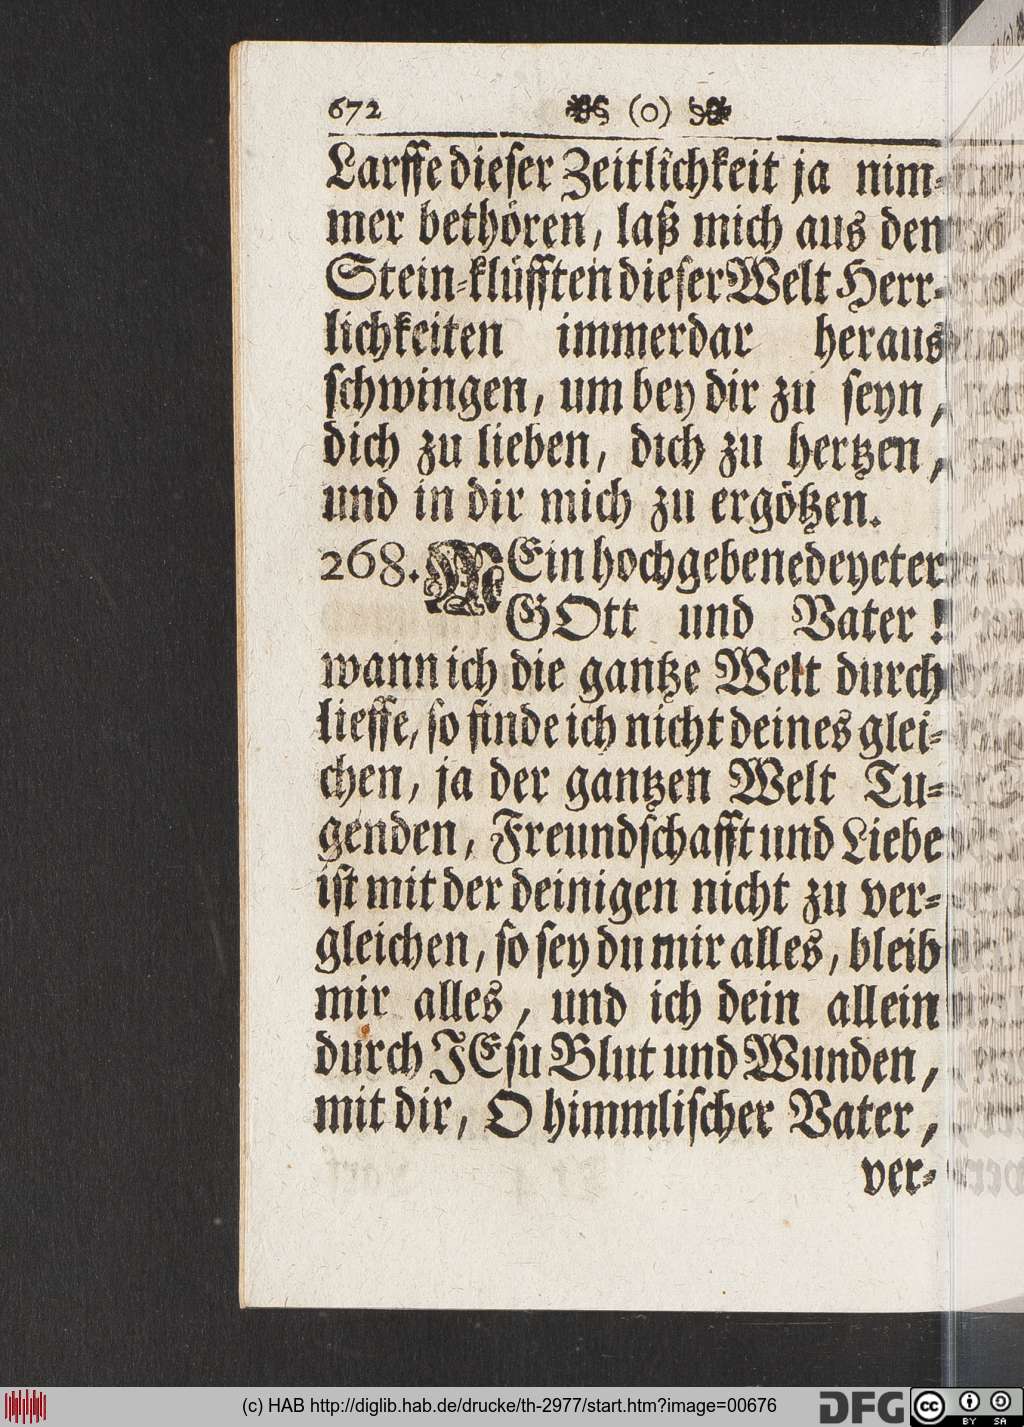 672 (o)
Larffe dieser Zeitlichkeit ja nim-
mer bethören, laß mich aus den
Stein-klüfften dieser Welt Herr-
lichkeiten immerdar heraus
schwingen, um bey dir zu seyn,
dich zu lieben, dich zu hertzen,
und in dir mich zu ergötzen.
268. MEin hochgebenedeyeter
GOtt und Vater!
wann ich die gantze Welt durch
lieffe, so finde ich nicht deines glei-
chen, ja der gantzen Welt Tu-
genden, Freundschafft und Liebe
ist mit der deinigen nicht zu ver-
gleichen, so sey du mir alles, bleib
mir alles, und ich dein allein
durch JEsu Blut und Wunden,
mit dir, O himmlischer Vater,
ver-
(c) HAB http://diglib.hab.de/drucke/th-2977/start.htm?image=00676
DFG cc BY SA